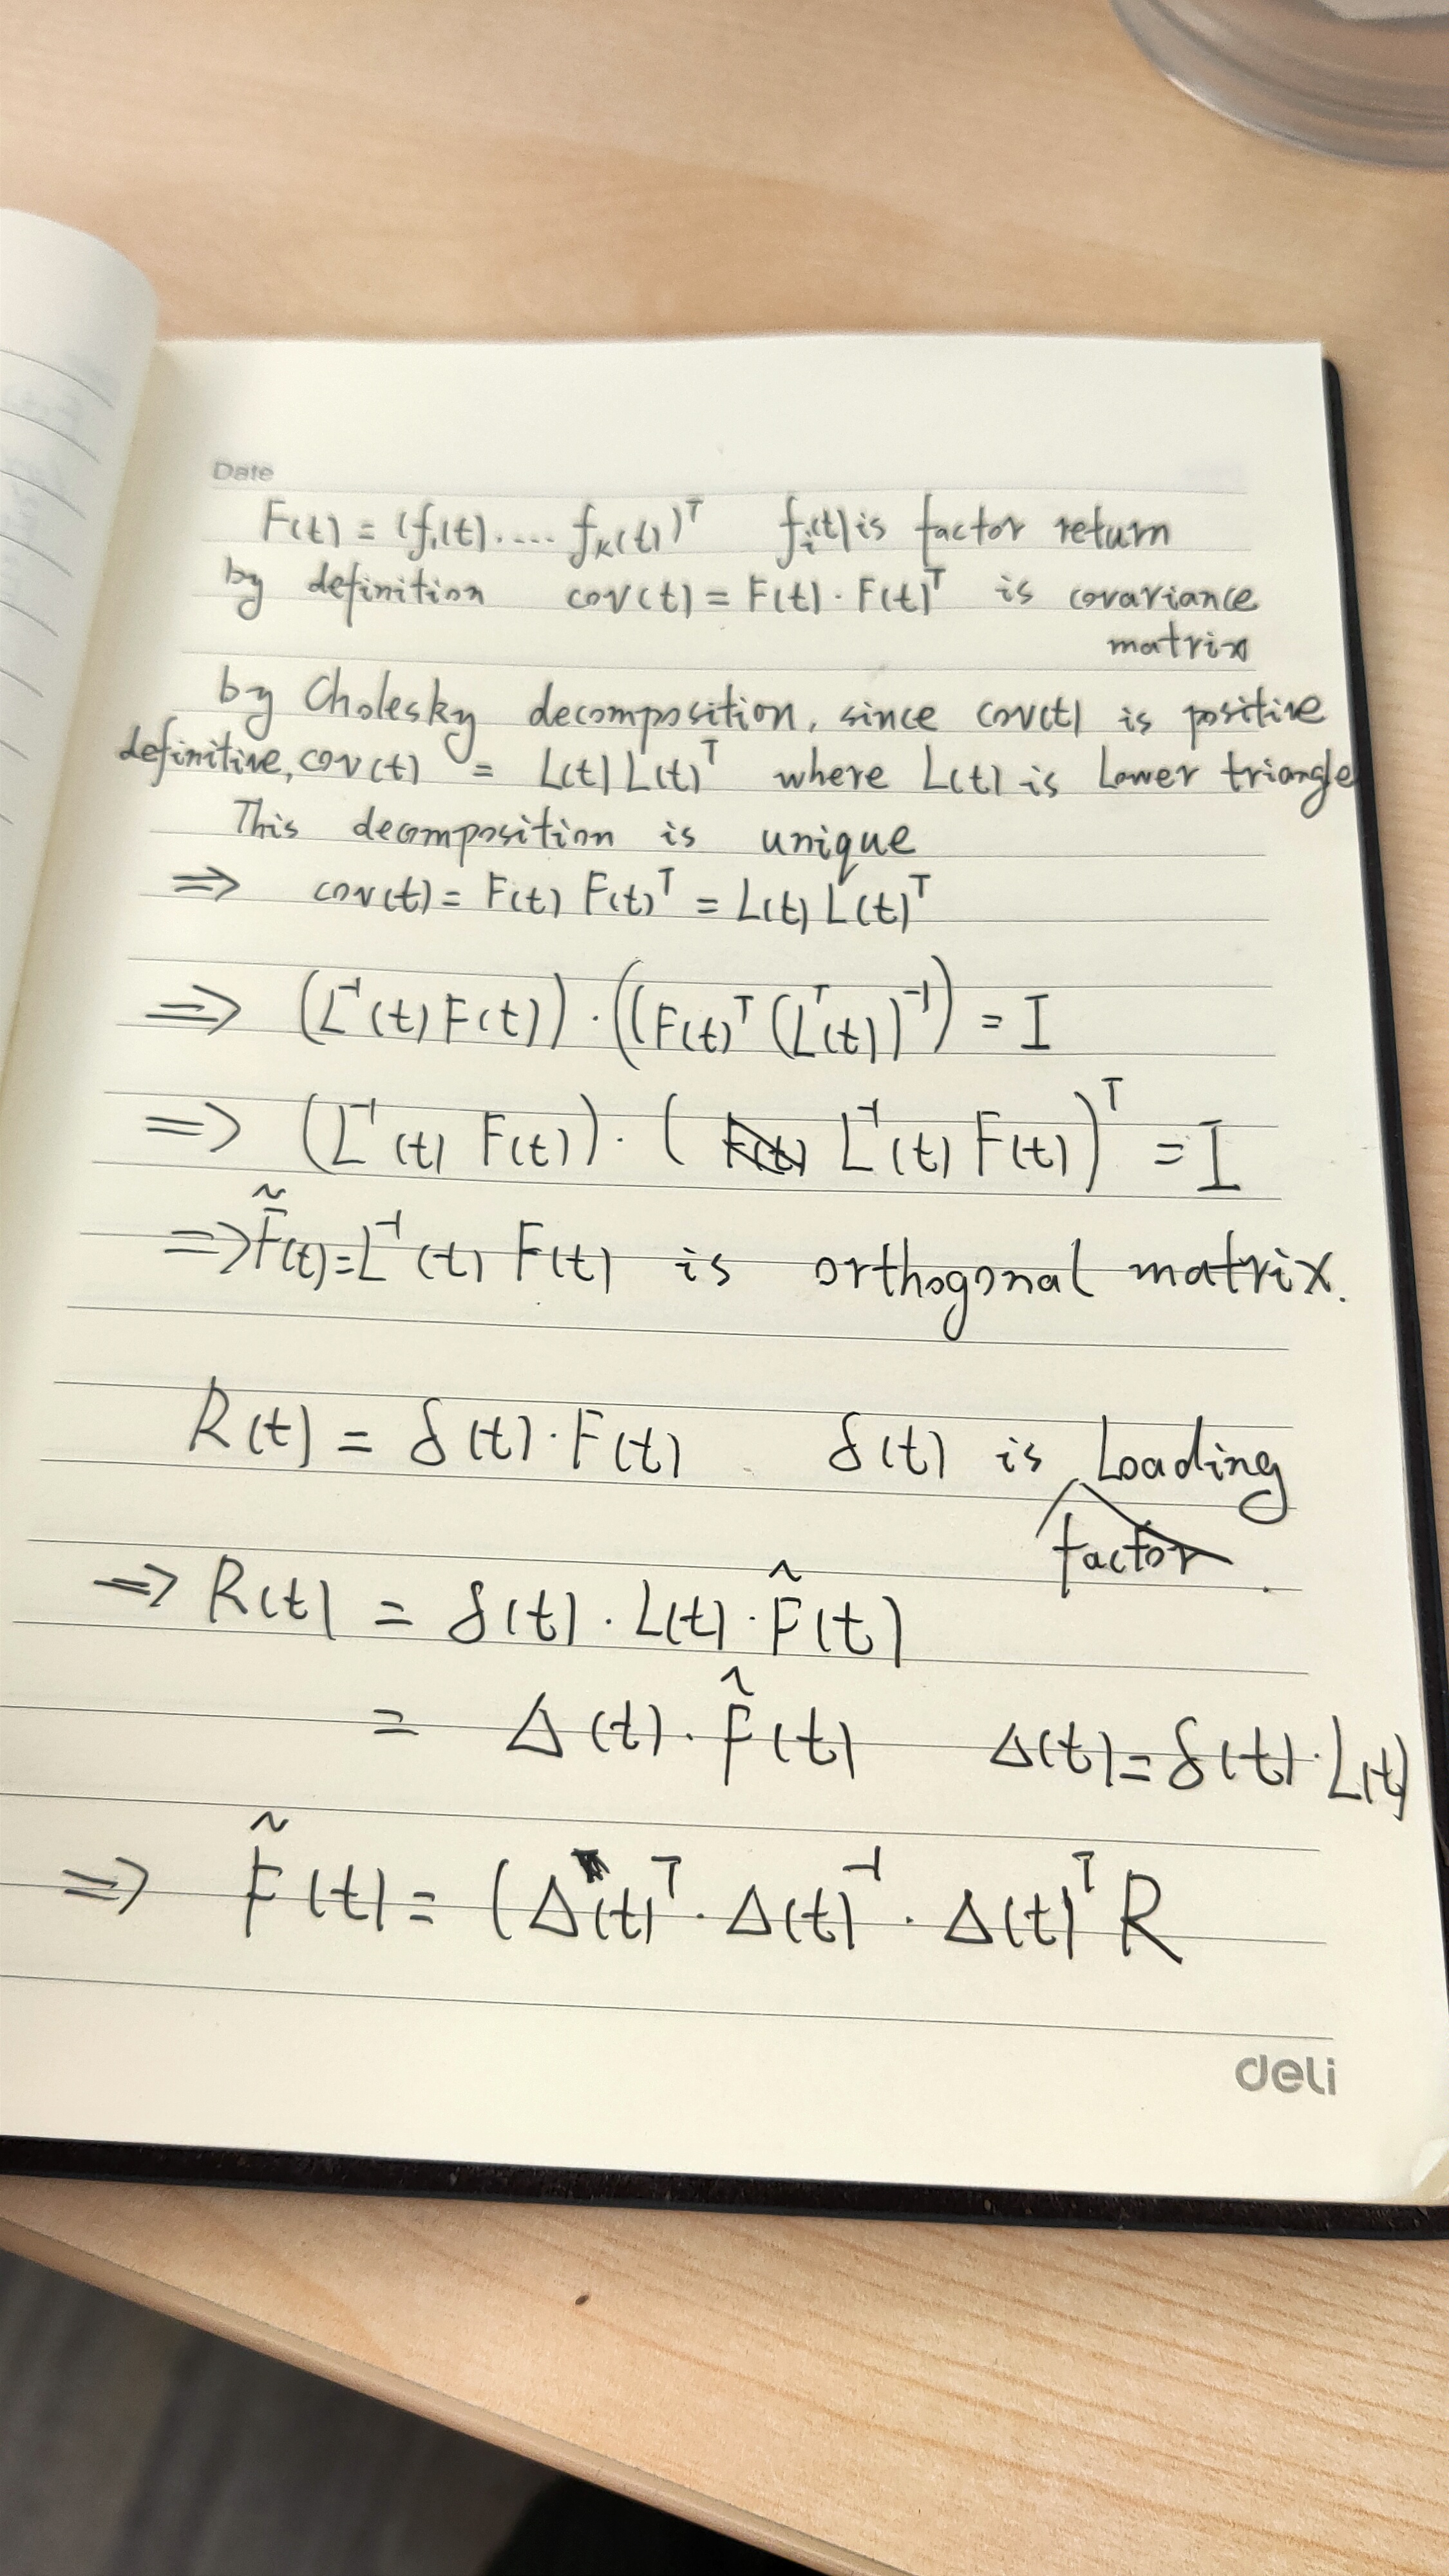 Date
F(t) = (f₁(t). .... fₖ(t))ᵀ fᵢ(t) is factor return
by definition cov(t) = F(t) · F(t)ᵀ is covariance
matrix
by Cholesky decomposition, since cov(t) is positive
definitive, cov(t) = L(t) L(t)ᵀ where L(t) is Lower triangle
This decomposition is unique
⇒ cov(t) = F(t) F(t)ᵀ = L(t) L(t)ᵀ
⇒ (L⁻¹(t) F(t)) · ((F(t)ᵀ (Lᵀ(t))⁻¹) = I
⇒ (L⁻¹(t) F(t)) · ( L⁻¹(t) F(t))ᵀ = I
⇒ F̃(t) = L⁻¹(t) F(t) is orthogonal matrix.
R(t) = δ(t) · F(t) . δ(t) is Loading
factor .
⇒ R(t) = δ(t) · L(t) · F̃(t)
= Δ(t) · F̃(t) Δ(t) = δ(t) · L(t)
⇒ F̃(t) = (Δ(t)ᵀ · Δ(t)⁻¹ · Δ(t)ᵀ R
deli